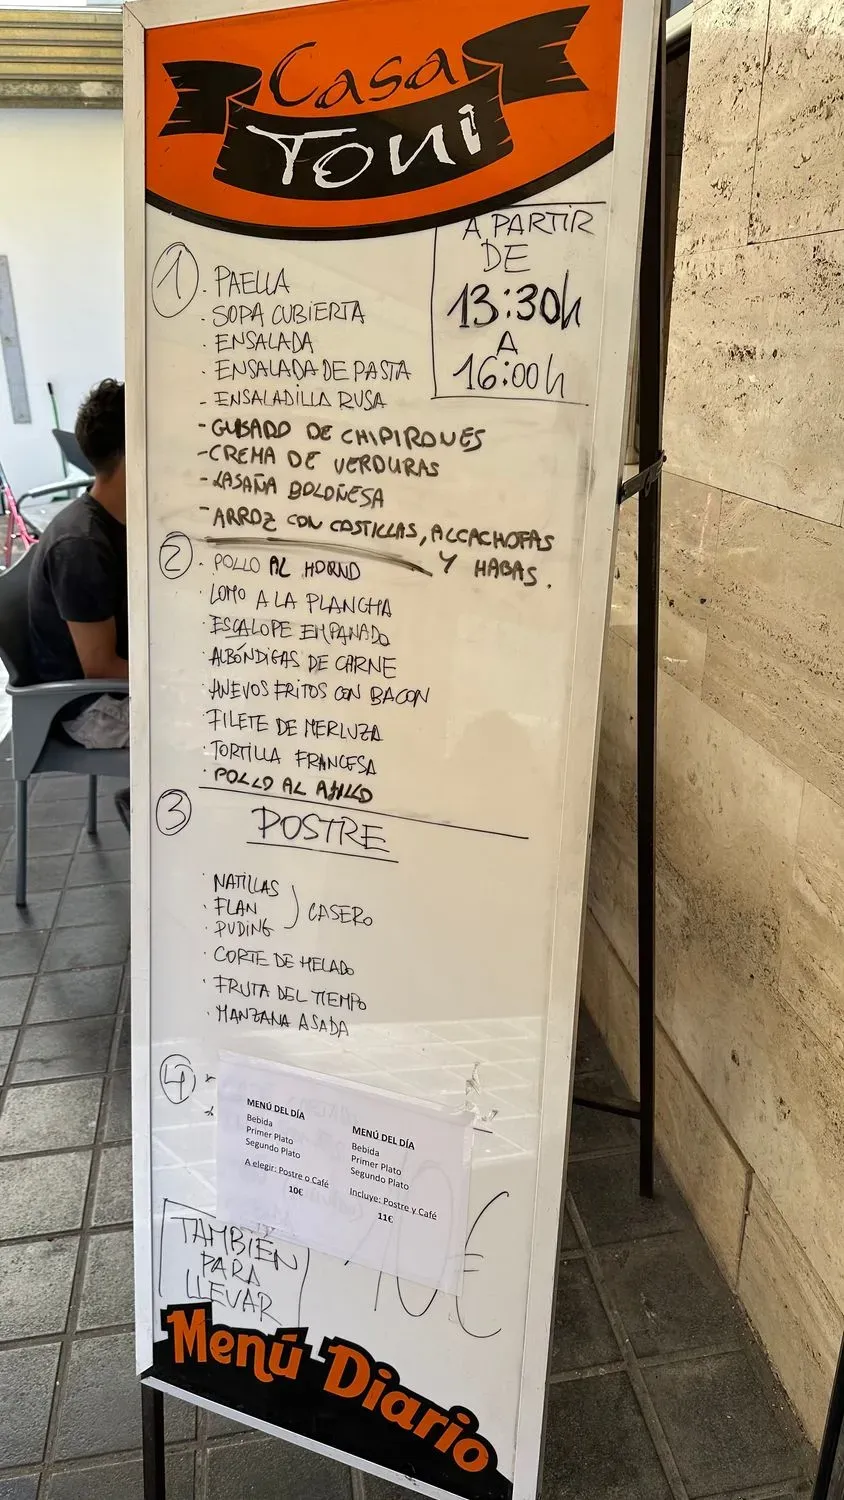 Casa
Toni
A PARTIR
DE
13:30h
A
16:00h
1
· PAELLA
· SOPA CUBIERTA
- ENSALADA
· ENSALADA DE PASTA
- ENSALADILLA RUSA
- GUISADO DE CHIPIRONES
- CREMA DE VERDURAS
- LASAÑA BOLOÑESA
- ARROZ CON COSTILLAS, ALCACHOFAS
Y HABAS.
2
· POLLO AL HORNO
· LOMO A LA PLANCHA
· ESCALOPE EMPANADO
· ALBÓNDIGAS DE CARNE
· HUEVOS FRITOS CON BACON
· FILETE DE MERLUZA
· TORTILLA FRANCESA
· POLLO AL AJILLO
3
POSTRE
· NATILLAS
· FLAN
· PUDING
CASERO
· CORTE DE HELADO
· FRUTA DEL TIEMPO
· MANZANA ASADA
4
MENÚ DEL DÍA
Bebida
Primer Plato
Segundo Plato
A elegir: Postre o Café
10€
MENÚ DEL DÍA
Bebida
Primer Plato
Segundo Plato
Incluye: Postre y Café
11€
10€
TAMBIÉN
PARA
LLEVAR
Menú Diario